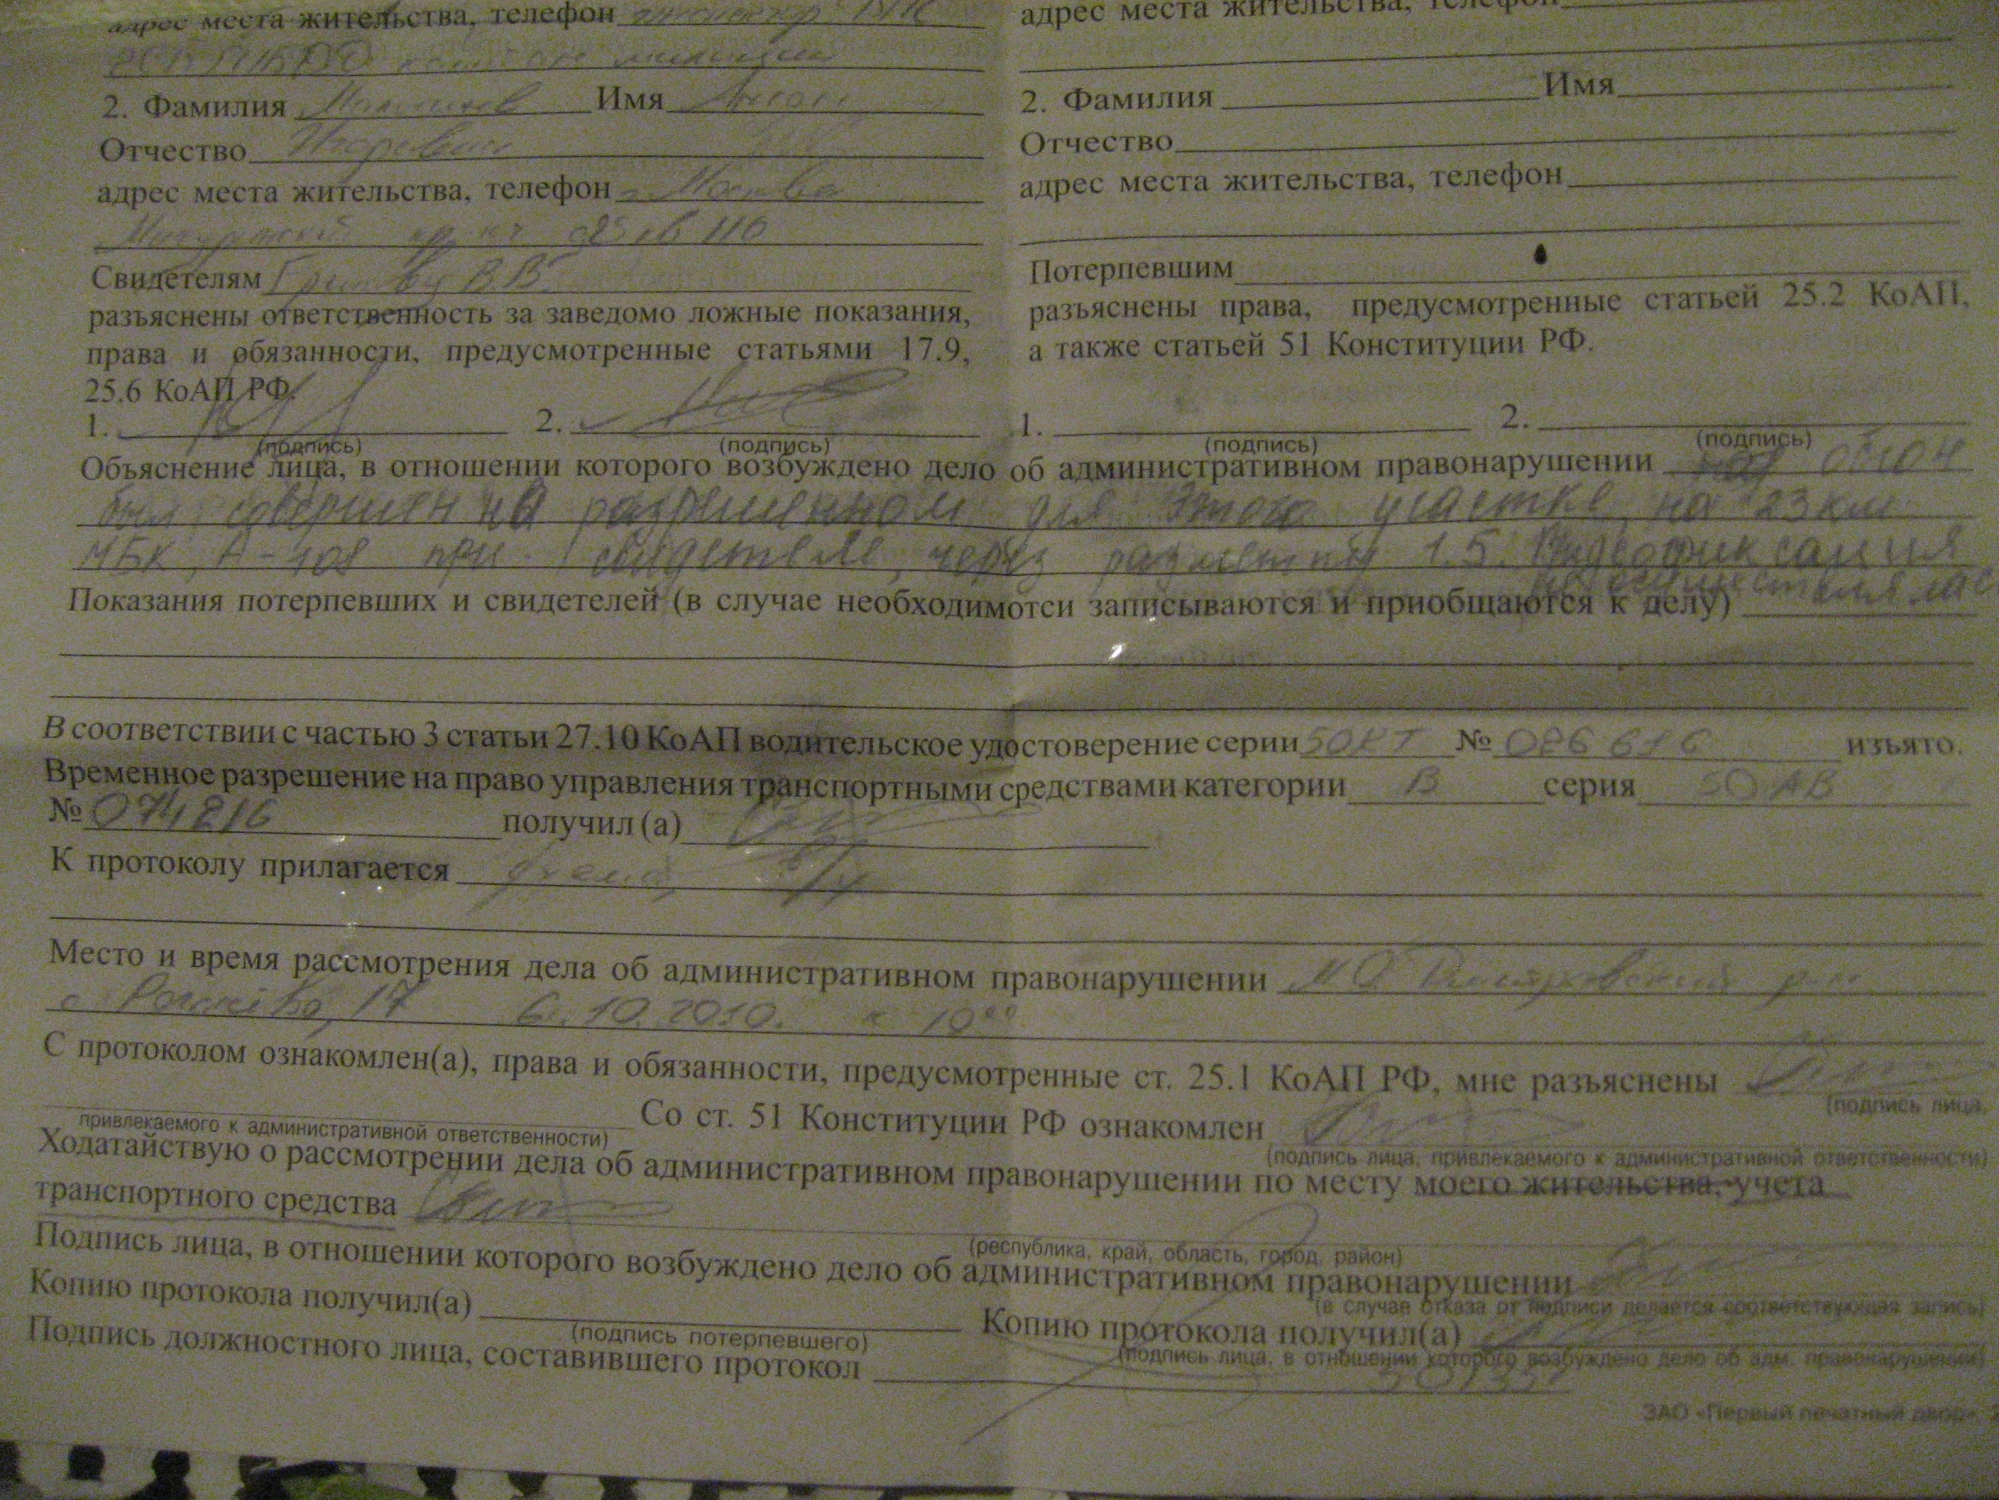 адрес места жительства, телефон инспектор
адрес места жительства, телефон
2. Фамилия Имя
2. Фамилия Имя
Отчество Игоревич
Отчество
адрес места жительства, телефон г. Москва
адрес места жительства, телефон
110
Свидетелям В.В.
Потерпевшим
разъяснены ответственность за заведомо ложные показания,
права и обязанности, предусмотренные статьями 17.9,
25.6 КоАП РФ.
разъяснены права, предусмотренные статьей 25.2 КоАП,
а также статьей 51 Конституции РФ.
1. 2.
(подпись) (подпись)
1. 2.
(подпись) (подпись)
Объяснение лица, в отношении которого возбуждено дело об административном правонарушении обгон
был совершен на разрешенном для этого участке, на 23 км
МБК, А-108 при свидетеле, через разметку 1.5. Видеофиксация
не осуществлялась
Показания потерпевших и свидетелей (в случае необходимотси записываются и приобщаются к делу)
В соответствии с частью 3 статьи 27.10 КоАП водительское удостоверение серии 50КТ № 026 616 изъято.
Временное разрешение на право управления транспортными средствами категории В серия 50 АВ
№ 074216 получил (а)
К протоколу прилагается схема,
Место и время рассмотрения дела об административном правонарушении М.О. Дмитровский р-н
с. 17 6.10.2010. к 10⁰⁰
С протоколом ознакомлен(а), права и обязанности, предусмотренные ст. 25.1 КоАП РФ, мне разъяснены
(подпись лица,
привлекаемого к административной ответственности) Со ст. 51 Конституции РФ ознакомлен
(подпись лица, привлекаемого к административной ответственности)
Ходатайствую о рассмотрении дела об административном правонарушении по месту моего жительства, учета
транспортного средства
(республика, край, область, город, район)
Подпись лица, в отношении которого возбуждено дело об административном правонарушении
(в случае отказа от подписи делается соответствующая запись)
Копию протокола получил(а) Копию протокола получил(а)
(подпись потерпевшего) (подпись лица, в отношении которого возбуждено дело об адм. правонарушении)
Подпись должностного лица, составившего протокол
ЗАО «Первый печатный двор»,